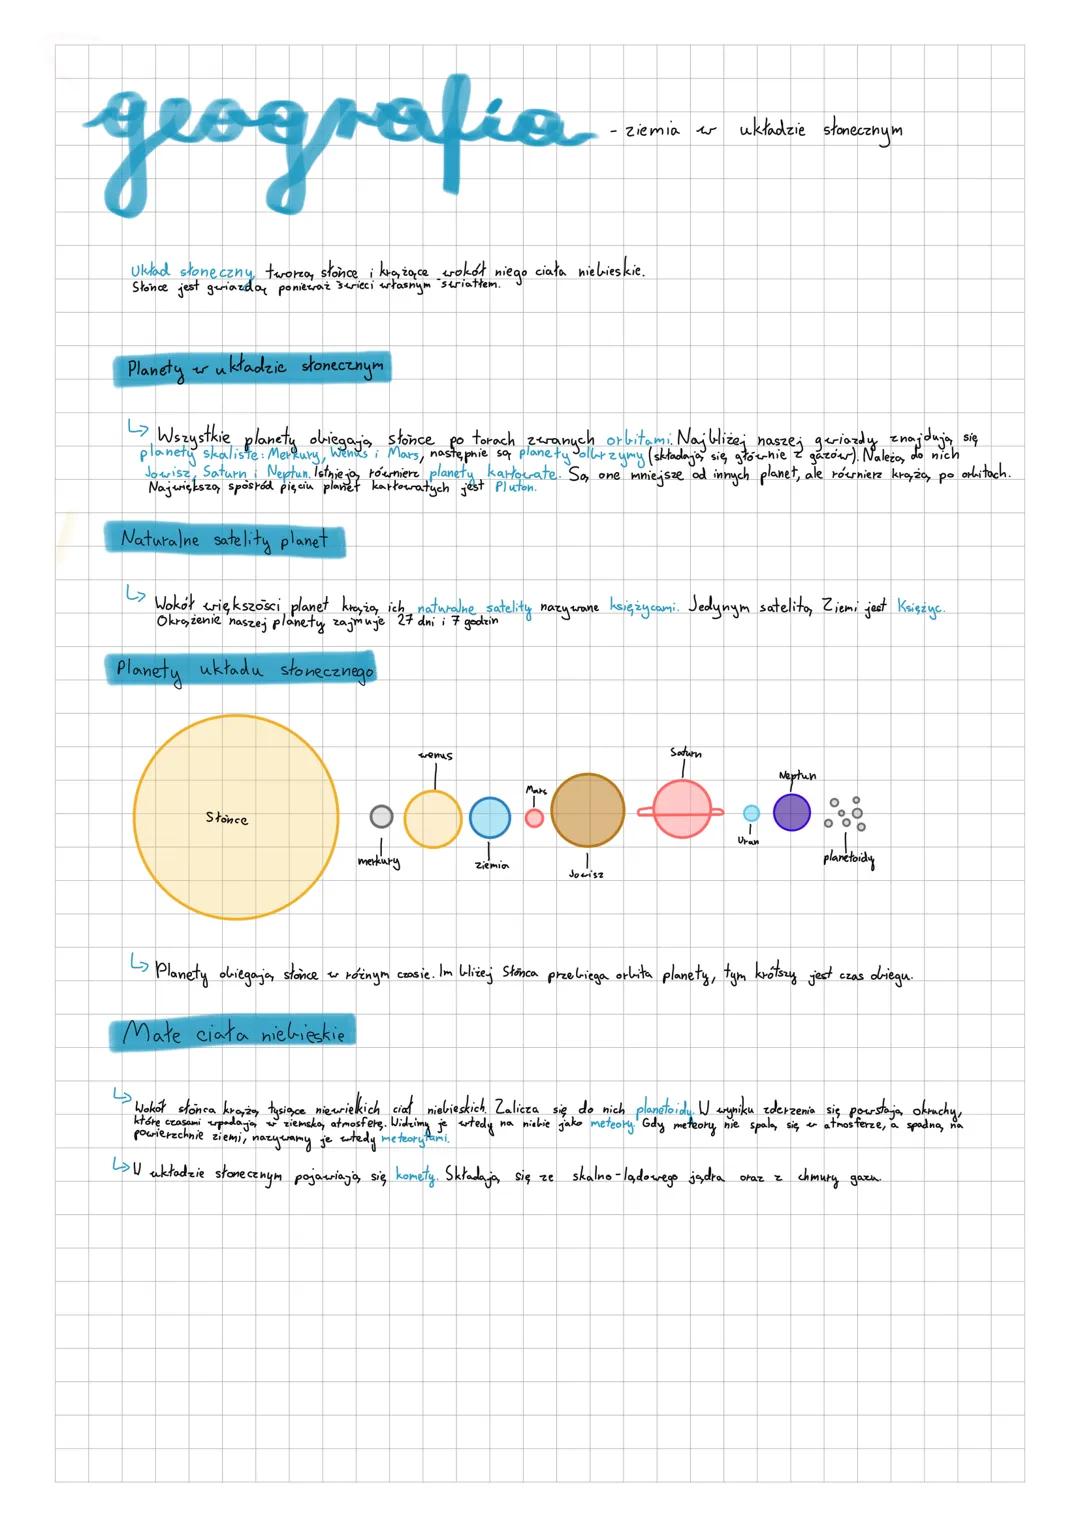 geografia - ziemia w układzie słonecznym
Układ słoneczny tworzą słońce i krążące wokół niego ciała niebieskie.
Słońce jest gwiazdą ponieważ świeci własnym światłem.
Planety w układzie słonecznym
↳ Wszystkie planety obiegają słońce po torach zwanych orbitami. Najbliżej naszej gwiazdy znajdują się
planety skaliste: Merkury, Wenus i Mars, następnie są planety olbrzymy (składają się głównie z gazów). Należą do nich
Jowisz, Saturn i Neptun. Istnieją również planety karłowate. Są one mniejsze od innych planet, ale również krążą po orbitach.
Największą spośród pięciu planet karłowatych jest Pluton.
Naturalne satelity planet
↳ Wokół większości planet krążą ich naturalne satelity nazywane księżycami. Jedynym satelitą Ziemi jest Księżyc.
Okrążenie naszej planety zajmuje 27 dni i 7 godzin
Planety układu słonecznego
Słońce
merkury
wenus
ziemia
Mars
Jowisz
Saturn
Uran
Neptun
planetoidy
↳ Planety obiegają słońce w różnym czasie. Im bliżej Słońca przebiega orbita planety, tym krótszy jest czas obiegu.
Małe ciała niebieskie
↳ Wokół słońca krążą tysiące niewielkich ciał niebieskich. Zalicza się do nich planetoidy. W wyniku zderzenia się powstają okruchy,
które czasami wpadają w ziemską atmosferę. Widzimy je wtedy na niebie jako meteory. Gdy meteory nie spalą się w atmosferze, a spadną na
powierzchnie ziemi, nazywamy je wtedy meteorytami.
↳ W układzie słonecznym pojawiają się komety. Składają się ze skalno-lądowego jądra oraz z chmury gazu.